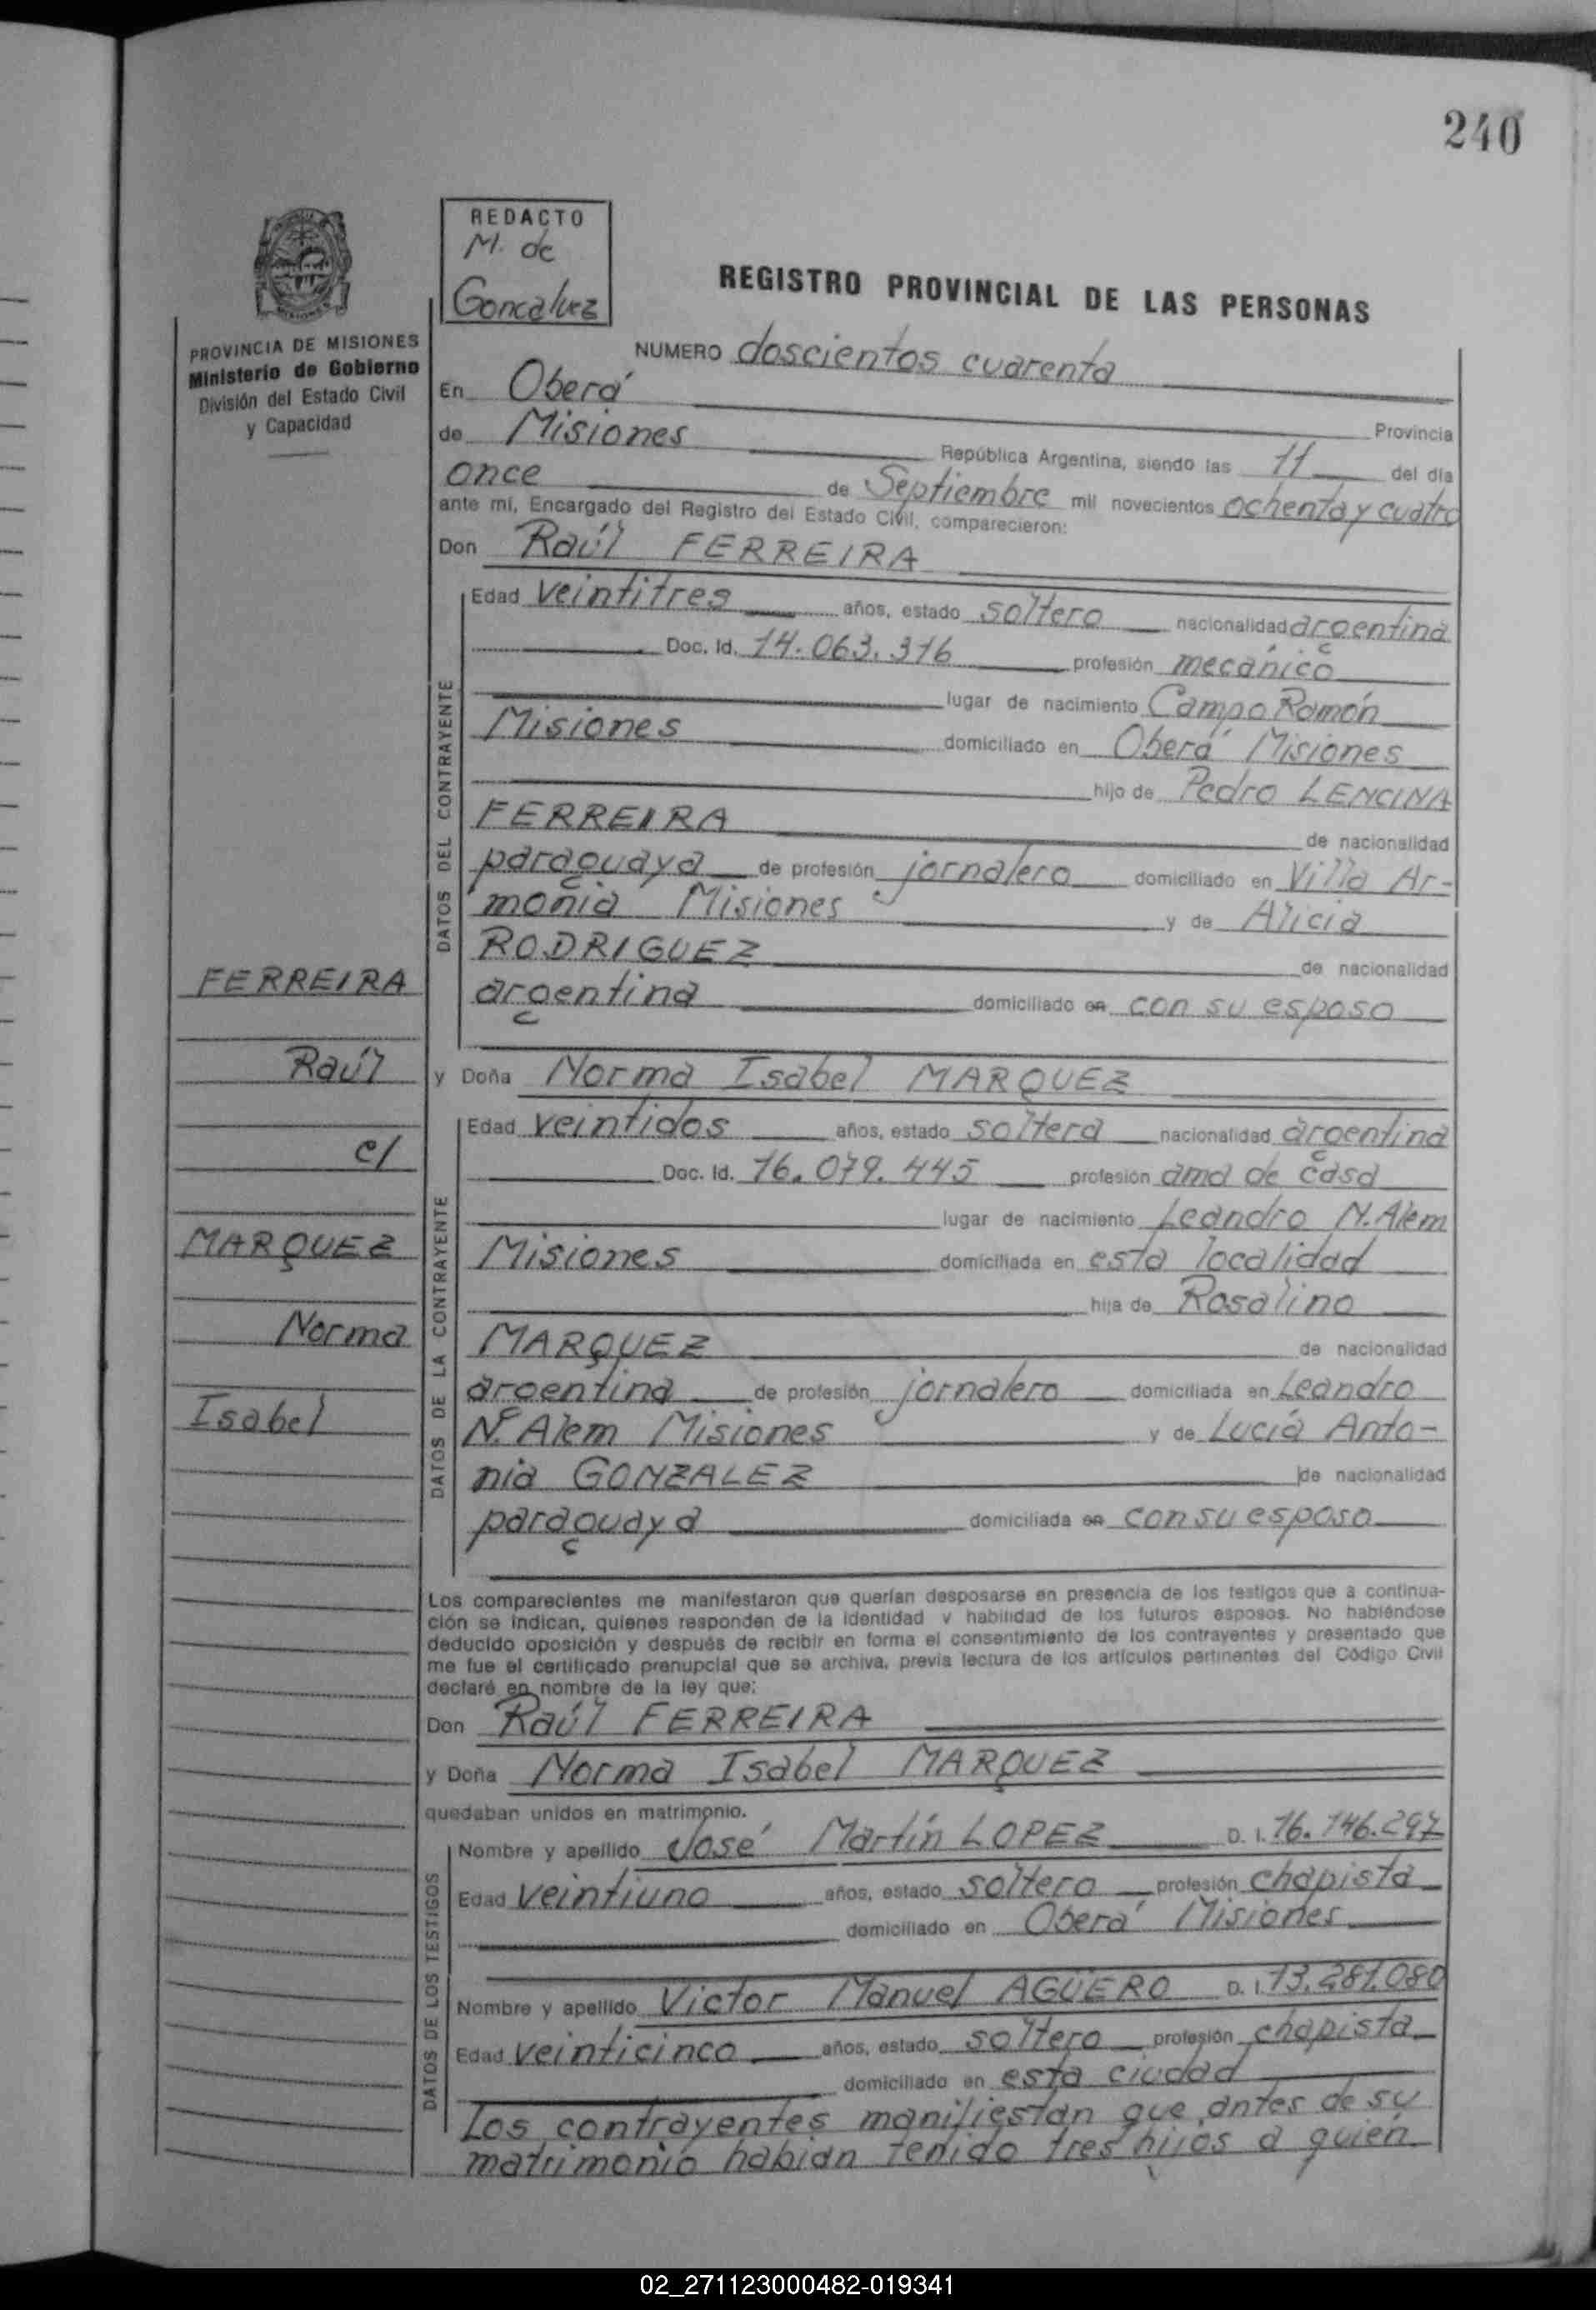 240
REDACTO
M. de
Goncalvez
REGISTRO PROVINCIAL DE LAS PERSONAS
PROVINCIA DE MISIONES
Ministerio de Gobierno
División del Estado Civil
y Capacidad
NUMERO doscientos cuarenta
En Oberá
Provincia
de Misiones República Argentina, siendo las 11 del día
once de Septiembre mil novecientos ochenta y cuatro
ante mí, Encargado del Registro del Estado Civil, comparecieron:
Don Raúl FERREIRA
DATOS DEL CONTRAYENTE
Edad veintitres años, estado soltero nacionalidad argentina
Doc. Id. 14.063.316 profesión mecánico
lugar de nacimiento Campo Ramón
Misiones domiciliado en Oberá Misiones
hijo de Pedro LENCINA
FERREIRA de nacionalidad
paraguaya de profesión jornalero domiciliado en Villa Ar-
monia Misiones y de Alicia
RODRIGUEZ de nacionalidad
argentina domiciliado en con su esposo
y Doña Norma Isabel MARQUEZ
FERREIRA
Raúl
c/
MARQUEZ
Norma
Isabel
DATOS DE LA CONTRAYENTE
Edad veintidos años, estado soltera nacionalidad argentina
Doc. Id. 16.079.445 profesión ama de casa
lugar de nacimiento Leandro N. Alem
Misiones domiciliada en esta localidad
hija de Rosalino
MARQUEZ de nacionalidad
argentina de profesión jornalero domiciliada en Leandro
N. Alem Misiones y de Lucía Anto-
nia GONZALEZ de nacionalidad
paraguaya domiciliada en con su esposo
Los comparecientes me manifestaron que querían desposarse en presencia de los testigos que a continua-
ción se indican, quienes responden de la identidad y habilidad de los futuros esposos. No habiéndose
deducido oposición y después de recibir en forma el consentimiento de los contrayentes y presentado que
me fue el certificado prenupcial que se archiva, previa lectura de los artículos pertinentes del Código Civil
declaré en nombre de la ley que:
Don Raúl FERREIRA
y Doña Norma Isabel MARQUEZ
quedaban unidos en matrimonio.
DATOS DE LOS TESTIGOS
Nombre y apellido José Martín LOPEZ D. I. 16.146.297
Edad veintiuno años, estado soltero profesión chapista
domiciliado en Oberá Misiones
Nombre y apellido Victor Manuel AGÜERO D. I. 13.281.080
Edad veinticinco años, estado soltero profesión chapista
domiciliado en esta ciudad
Los contrayentes manifiestan que antes de su
matrimonio habian tenido tres hijos a quien
02_271123000482-019341